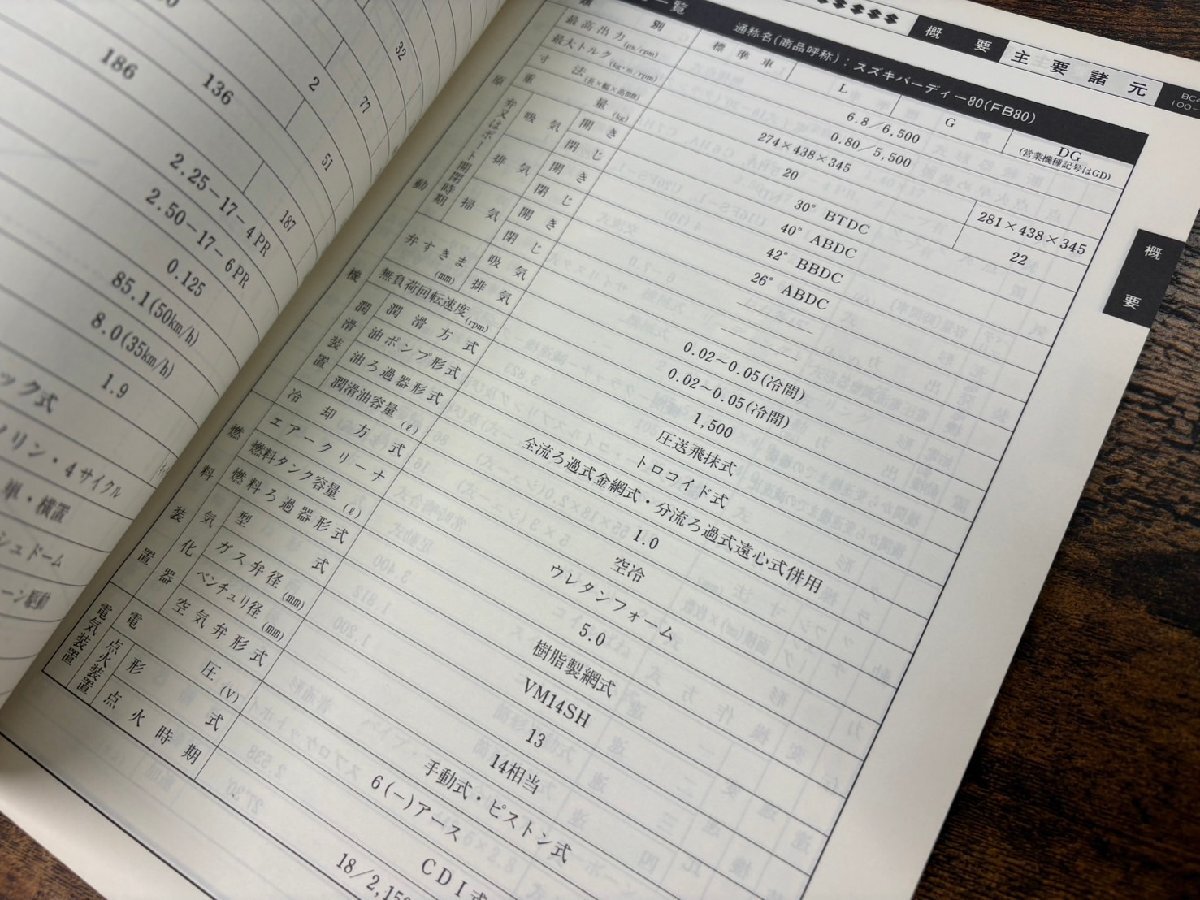 00
186 136
32
2
77
51
187
2.25-17-4PR
2.50-17-6PR
0.125
85.1(50km/h)
8.0(35km/h)
1.9
ック式
リン・4サイクル
単・横置
シュドーム
ーン駆動
概要 主要諸元
概要
一覧
通称名(商品呼称):スズキバーディー80(FB80)
類別 標準車 L G DG
(営業機種記号はGD)
最高出力(ps/rpm) 6.8/6,500
最大トルク(kg-m/rpm) 0.80/5,500
寸法(長×幅×高mm) 274×438×345 281×438×345
重量(kg) 20 22
原動機
弁又はポート開閉時期
吸気 開き 30°BTDC
閉じ 40°ABDC
排気 開き 42°BBDC
閉じ 26°ABDC
掃気 開き ―
閉じ ―
弁すきま(mm) 吸気 0.02~0.05(冷間)
排気 0.02~0.05(冷間)
無負荷回転速度(rpm) 1,500
潤滑装置
潤滑方式 圧送飛抹式
油ポンプ形式 トロコイド式
油ろ過器形式 全流ろ過式金網式・分流ろ過式遠心式併用
潤滑油容量(ℓ) 1.0
冷却方式 空冷
エアークリーナ ウレタンフォーム
燃料装置
燃料タンク容量(ℓ) 5.0
燃料ろ過器形式 樹脂製網式
気化器
型式 VM14SH
ガス弁径(mm) 13
ベンチュリ径(mm) 14相当
空気弁形式 手動式・ピストン式
電気装置
電圧(V) 6(-)アース
点火装置
形式 CDI式
点火時期 18/2,15